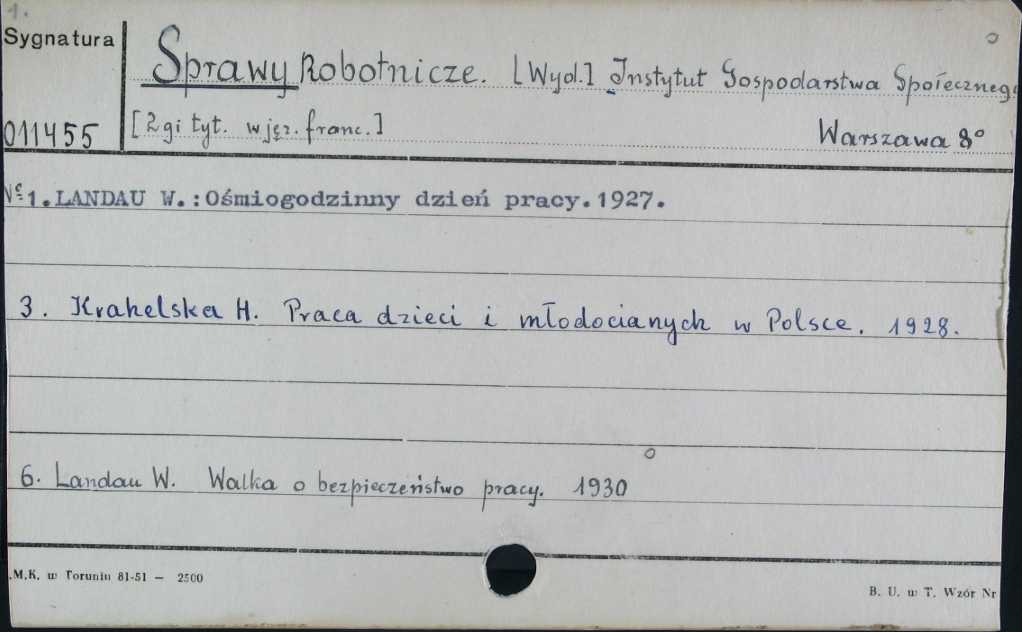 1.
Sygnatura
Sprawy Robotnicze. [Wyd.] Instytut Gospodarstwa Społeczneg
011455
[2gi tyt. w jęz. franc.]
Warszawa 8°
Nr 1. LANDAU W.: Ośmiogodzinny dzień pracy. 1927.
3. Krahelska H. Praca dzieci i młodocianych w Polsce. 1928.
6. Landau W. Walka o bezpieczeństwo pracy. 1930
.M.K. w Toruniu 81-51 — 2500
B. U. w T. Wzór Nr